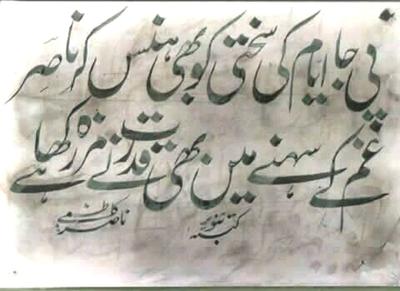 پی جا ایام کی سختی کو بھی ہنس کر ناصر
غم کے سہنے میں بھی قدرت نے مزہ رکھا ہے
کتبہ تنویر ناصر کاظمی